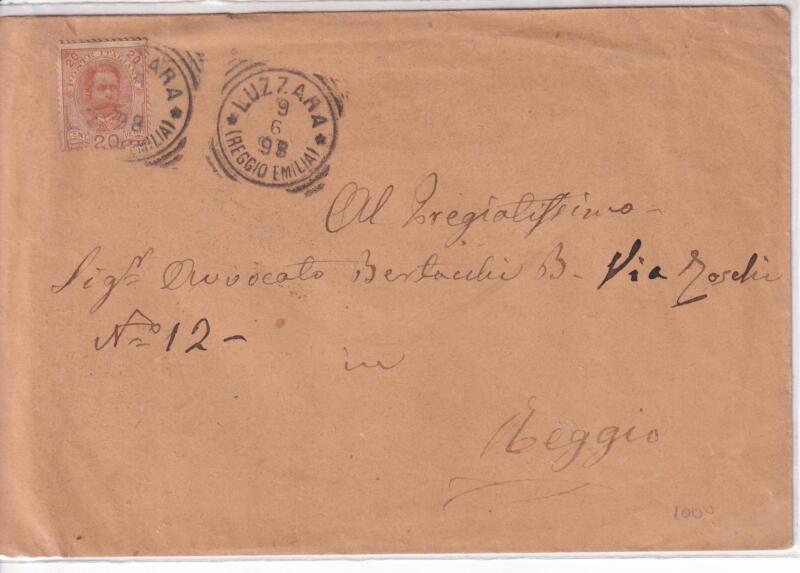 20 20
POSTE ITALIANE
20
LUZZARA
9
6
98
(REGGIO EMILIA)
Al Pregiatissimo -
Sigr Avvocato Bertacchi B - Via Toschi
No 12 -
in
Reggio
1000